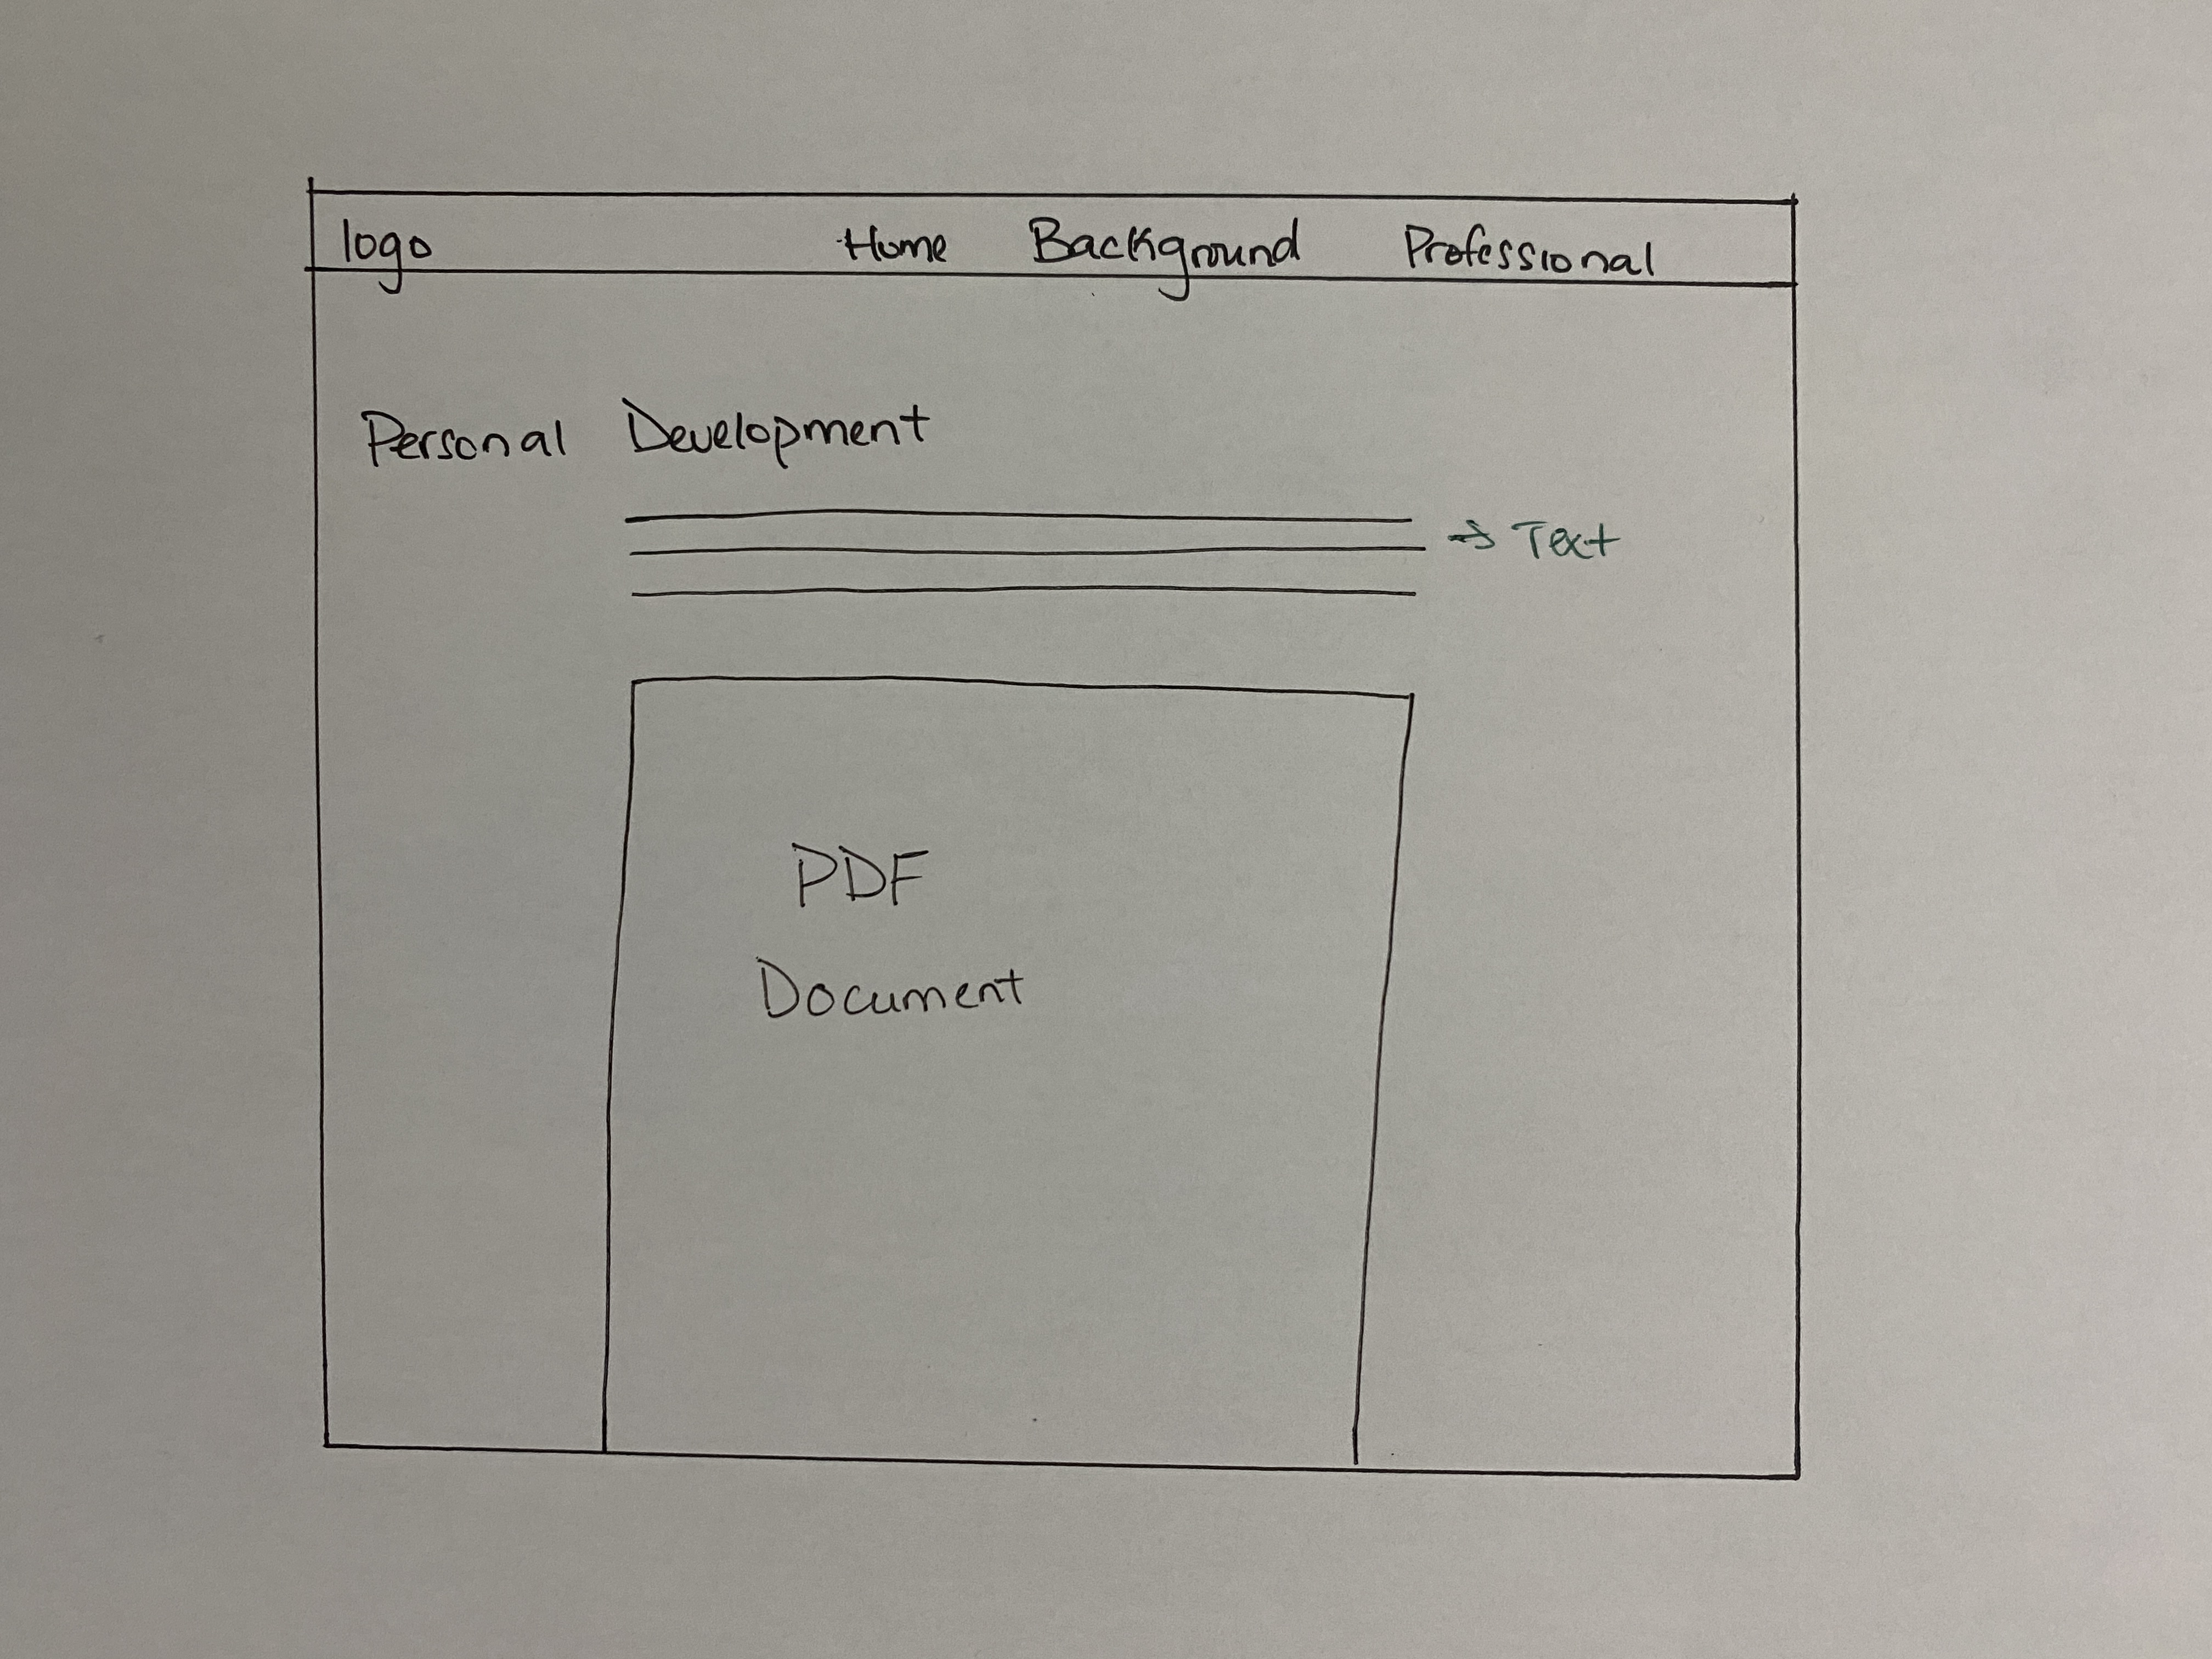 logo Home Background Professional
Personal Development
→ Text
PDF
Document